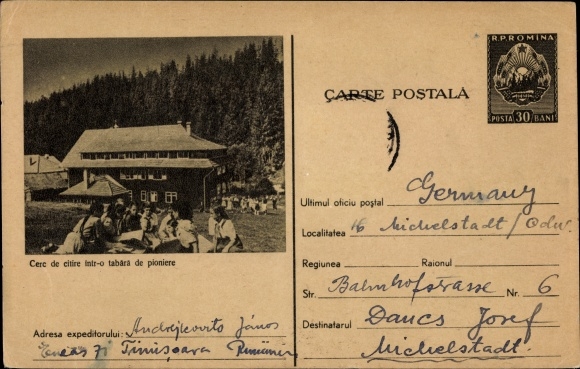 R.P.ROMINA
POSTA 30 BANI
CARTE POSTALĂ
Cerc de citire într-o tabără de pioniere
Ultimul oficiu poștal Germany
Localitatea 16 Michelstadt/Odw.
Regiunea Raionul
Str. Bahnhofstrasse Nr. 6
Destinatarul Dancs Josef
Michelstadt.
Adresa expeditorului: Andrejkovits János
71 Timișoara